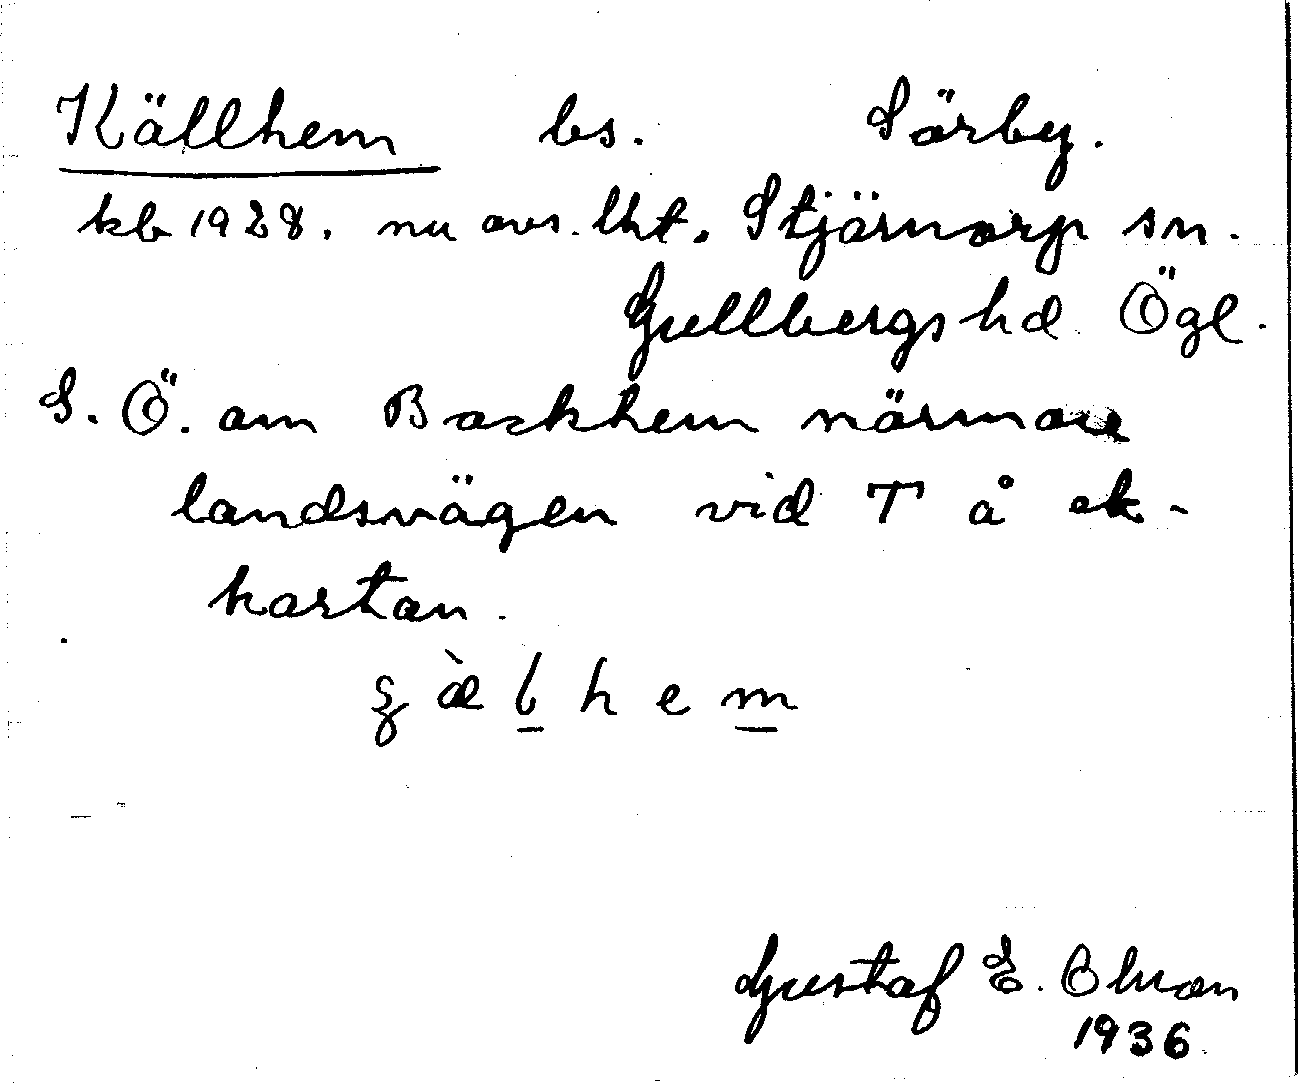 Källhem bs. Sörby.
kb 1928. nu avs. lht. Stjärnorp sn.
Gullbergs hd Ögl.
S. Ö. om Backhem närmare
landsvägen vid T å ek-
kartan.
h e m
Gustaf E. Olsson
1936